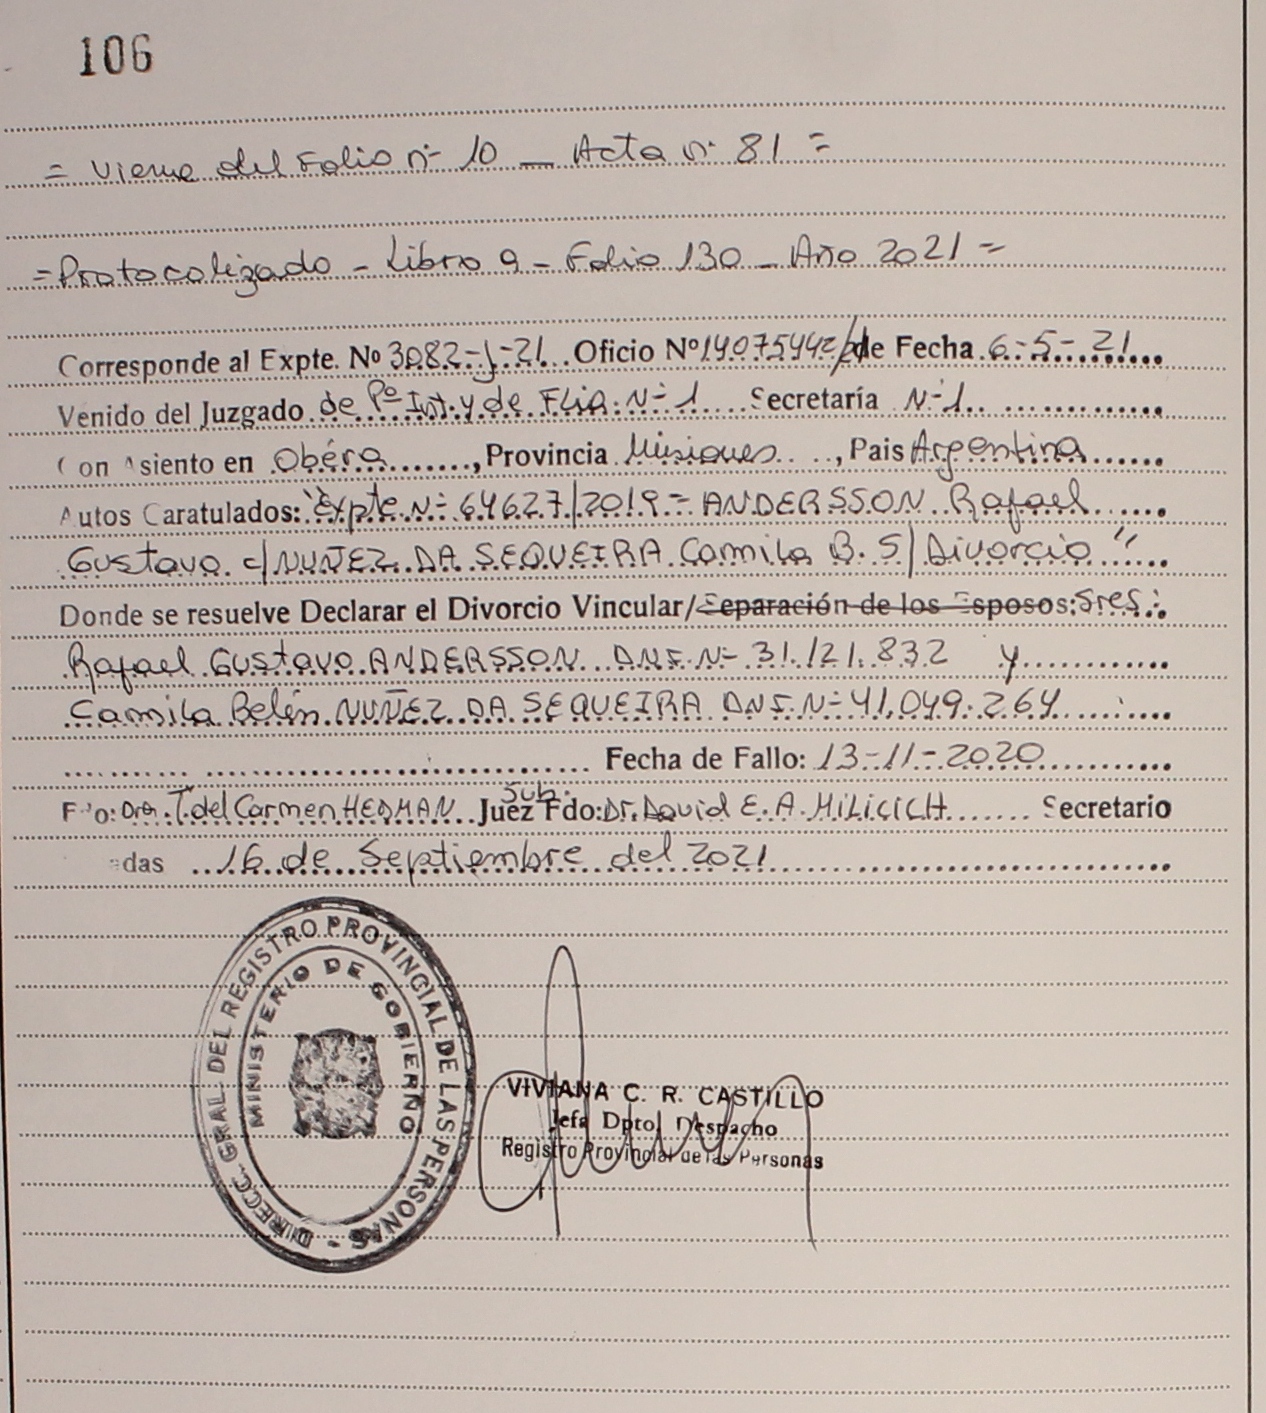 106
= Viene del Folio nº 10 _ Acta nº 81 =
= Protocolizado - Libro 9 - Folio 130 _ Año 2021 =
Corresponde al Expte. Nº 3082-J-21 Oficio Nº 14075442/ de Fecha 6-5-21
Venido del Juzgado de Pº Inst. y de Flia. Nº 1 Secretaría Nº 1
Con Asiento en Oberá, Provincia Misiones, Pais Argentina
Autos Caratulados: "Expte Nº 64627/2019 = ANDERSSON Rafael
Gustavo c/ NUÑEZ DA SEQUEIRA Camila B. S/ Divorcio"
Donde se resuelve Declarar el Divorcio Vincular/Separación de los Esposos: Sres:
Rafael Gustavo ANDERSSON DNI Nº 31.121.832 y
Camila Belén NUÑEZ DA SEQUEIRA DNI Nº 41.049.264
Fecha de Fallo: 13-11-2020
Fdo: Dra. T. del Carmen HEDMAN Juez Sub. Fdo: Dr. David E. A. MILICICH Secretario
das 16 de Septiembre del 2021
DIRECC. GRAL. DEL REGISTRO PROVINCIAL DE LAS PERSONAS -
MINISTERIO DE GOBIERNO
VIVIANA C. R. CASTILLO
Jefa Dpto. Despacho
Registro Provincial de las Personas